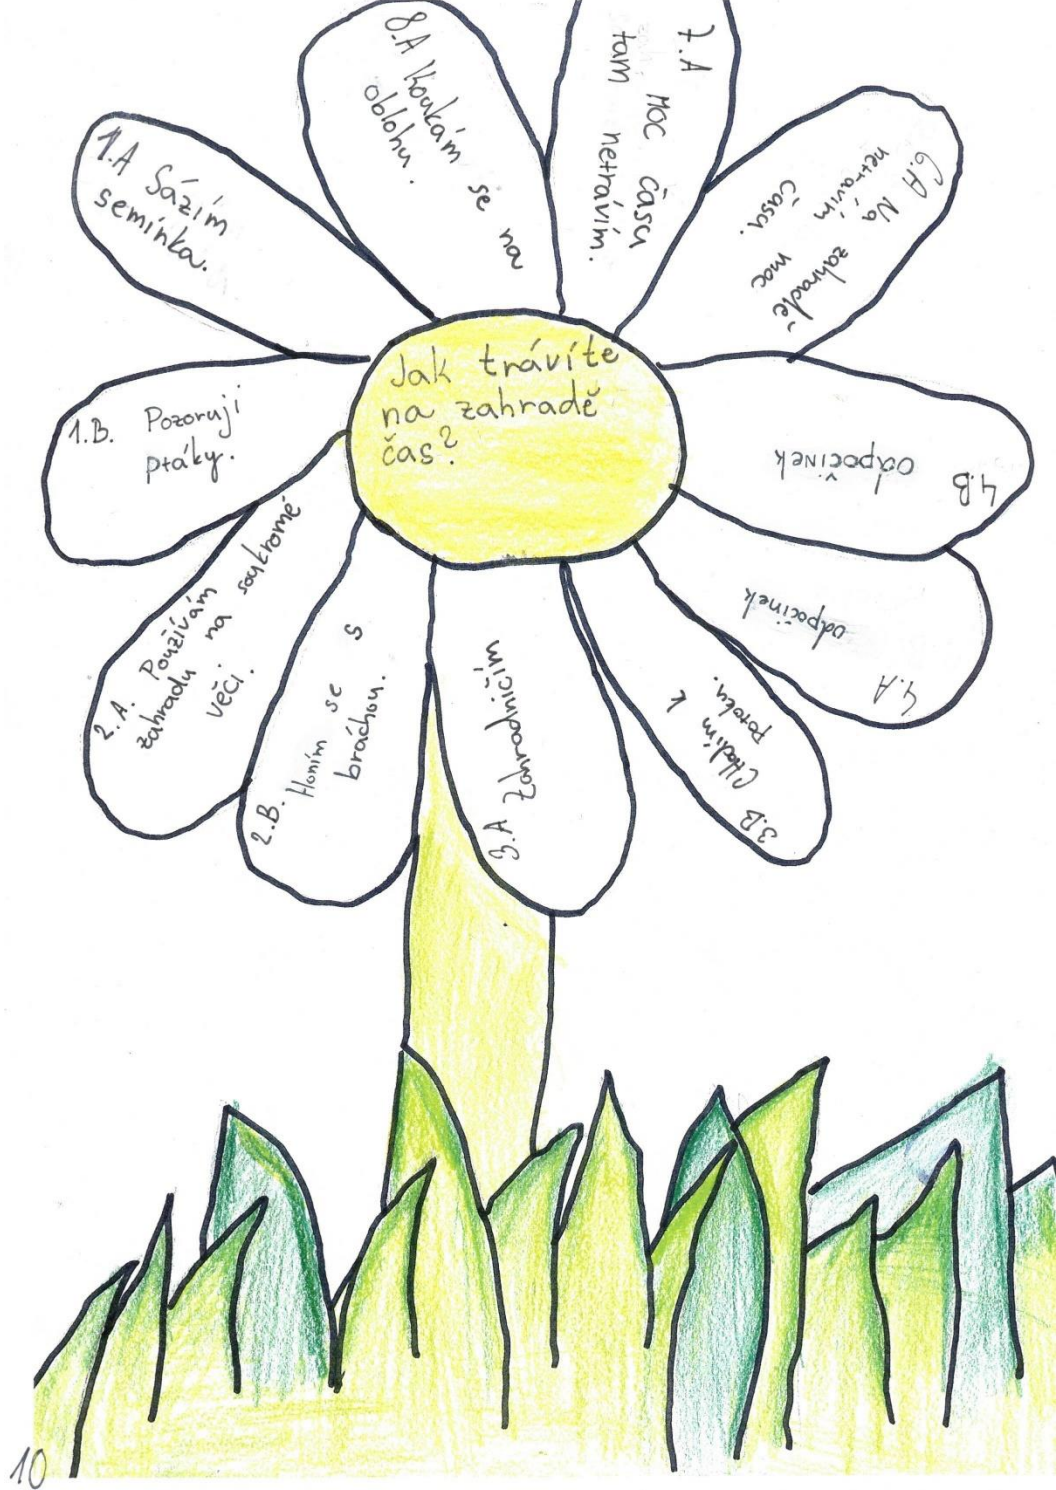 Jak trávíte
na zahradě
čas?
1.A Sázím
semínka.
1.B. Pozoruji
ptáky.
2.A. Používám
zahradu na soukromé
věci.
2.B. Honím se s
bráchou.
3.A Zahradničím
3.B Chodím k
potoku.
4.A
odpočinek
4.B
odpočinek
6.A Ná zahradě
netrávím moc
času.
7.A Moc času
tam netrávím.
8.A Koukám se na
oblohu.
10